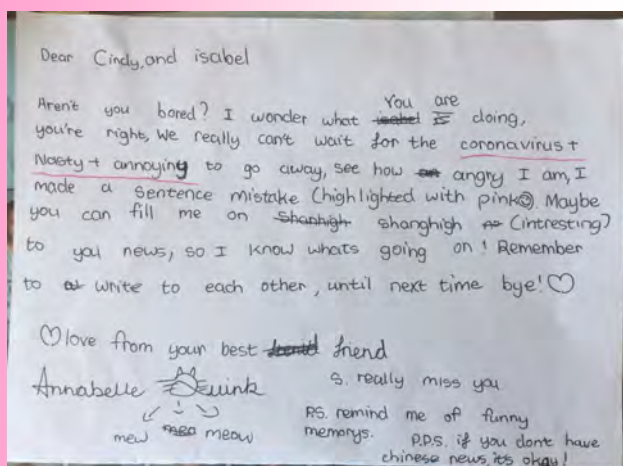 Dear Cindy, and isabel
Aren't you bored? I wonder what isabel is You are doing,
you're right, We really can't wait for the coronavirus +
Nasty + annoying to go away, see how angry I am, I
made a sentence mistake (highlighted with pink☺). Maybe
you can fill me on Shanhigh shanghigh (intresting)
to you news, so I know whats going on! Remember
to write to each other, until next time bye! ♡
♡love from your best friend
Annabelle
mew meo meow
S. really miss you
P.S. remind me of funny
memorys.
P.P.S. if you dont have
chinese news, it's okay!